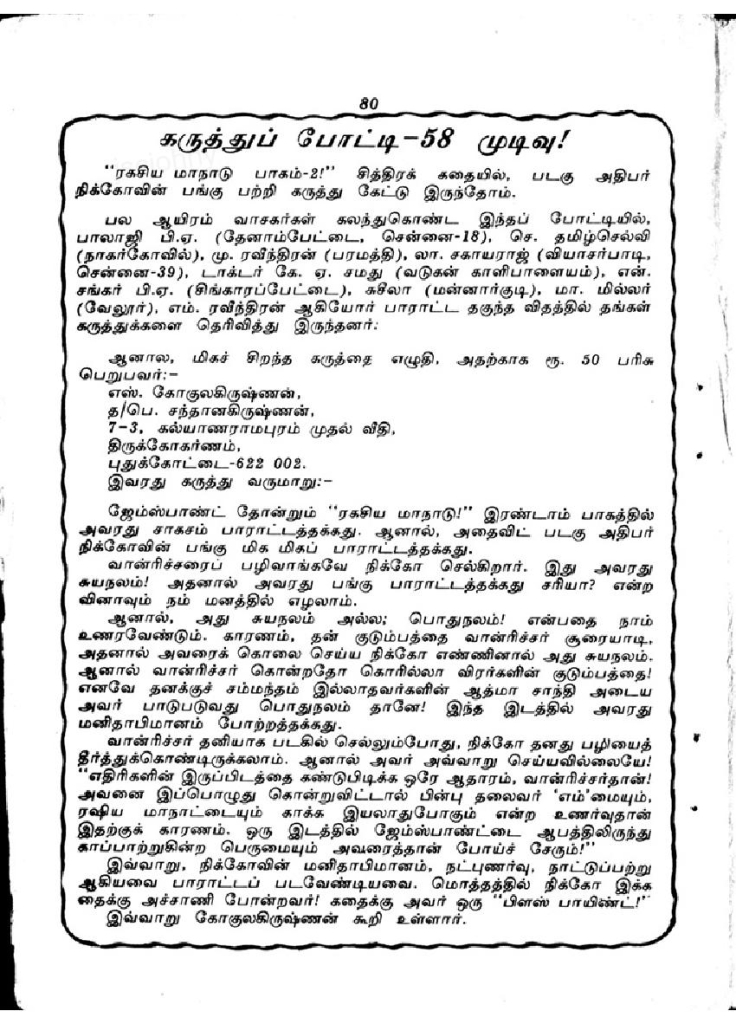 80
கருத்துப் போட்டி-58 முடிவு!
"ரகசிய மாநாடு பாகம்-2!" சித்திரக் கதையில், படகு அதிபர்
நிக்கோவின் பங்கு பற்றி கருத்து கேட்டு இருந்தோம்.
பல ஆயிரம் வாசகர்கள் கலந்துகொண்ட இந்தப் போட்டியில்,
பாலாஜி பி.ஏ. (தேனாம்பேட்டை, சென்னை-18), செ. தமிழ்செல்வி
(நாகர்கோவில்), மு. ரவீந்திரன் (பரமத்தி), லா. சகாயராஜ் (வியாசர்பாடி,
சென்னை-39), டாக்டர் கே. ஏ. சமது (வடுகன் காளிபாளையம்), என்.
சங்கர் பி.ஏ. (சிங்காரப்பேட்டை), சுசீலா (மன்னார்குடி), மா. மில்லர்
(வேலூர்), எம். ரவீந்திரன் ஆகியோர் பாராட்ட தகுந்த விதத்தில் தங்கள்
கருத்துக்களை தெரிவித்து இருந்தனர்:
ஆனால, மிகச் சிறந்த கருத்தை எழுதி, அதற்காக ரூ. 50 பரிசு
பெறுபவர்:-
எஸ். கோகுலகிருஷ்ணன்,
த/பெ. சந்தானகிருஷ்ணன்,
7-3, கல்யாணராமபுரம் முதல் வீதி,
திருக்கோகர்ணம்,
புதுக்கோட்டை-622 002.
இவரது கருத்து வருமாறு:-
ஜேம்ஸ்பாண்ட் தோன்றும் "ரகசிய மாநாடு!" இரண்டாம் பாகத்தில்
அவரது சாகசம் பாராட்டத்தக்கது. ஆனால், அதைவிட் படகு அதிபர்
நிக்கோவின் பங்கு மிக மிகப் பாராட்டத்தக்கது.
வான்ரிச்சரைப் பழிவாங்கவே நிக்கோ செல்கிறார். இது அவரது
சுயநலம்! அதனால் அவரது பங்கு பாராட்டத்தக்கது சரியா? என்ற
வினாவும் நம் மனத்தில் எழலாம்.
ஆனால், அது சுயநலம் அல்ல; பொதுநலம்! என்பதை நாம்
உணரவேண்டும். காரணம், தன் குடும்பத்தை வான்ரிச்சர் சூரையாடி,
அதனால் அவரைக் கொலை செய்ய நிக்கோ எண்ணினால் அது சுயநலம்.
ஆனால் வான்ரிச்சர் கொன்றதோ கொரில்லா விரர்களின் குடும்பத்தை!
எனவே தனக்குச் சம்மந்தம் இல்லாதவர்களின் ஆத்மா சாந்தி அடைய
அவர் பாடுபடுவது பொதுநலம் தானே! இந்த இடத்தில் அவரது
மனிதாபிமானம் போற்றத்தக்கது.
வான்ரிச்சர் தனியாக படகில் செல்லும்போது, நிக்கோ தனது பழியைத்
தீர்த்துக்கொண்டிருக்கலாம். ஆனால் அவர் அவ்வாறு செய்யவில்லையே!
"எதிரிகளின் இருப்பிடத்தை கண்டுபிடிக்க ஒரே ஆதாரம், வான்ரிச்சர்தான்!
அவனை இப்பொழுது கொன்றுவிட்டால் பின்பு தலைவர் 'எம்'மையும்,
ரஷிய மாநாட்டையும் காக்க இயலாதுபோகும் என்ற உணர்வுதான்
இதற்குக் காரணம். ஒரு இடத்தில் ஜேம்ஸ்பாண்ட்டை ஆபத்திலிருந்து
காப்பாற்றுகின்ற பெருமையும் அவரைத்தான் போய்ச் சேரும்!"
இவ்வாறு, நிக்கோவின் மனிதாபிமானம், நட்புணர்வு, நாட்டுப்பற்று
ஆகியவை பாராட்டப் படவேண்டியவை. மொத்தத்தில் நிக்கோ இக்க
தைக்கு அச்சாணி போன்றவர்! கதைக்கு அவர் ஒரு "பிளஸ் பாயிண்ட்!"
இவ்வாறு கோகுலகிருஷ்ணன் கூறி உள்ளார்.